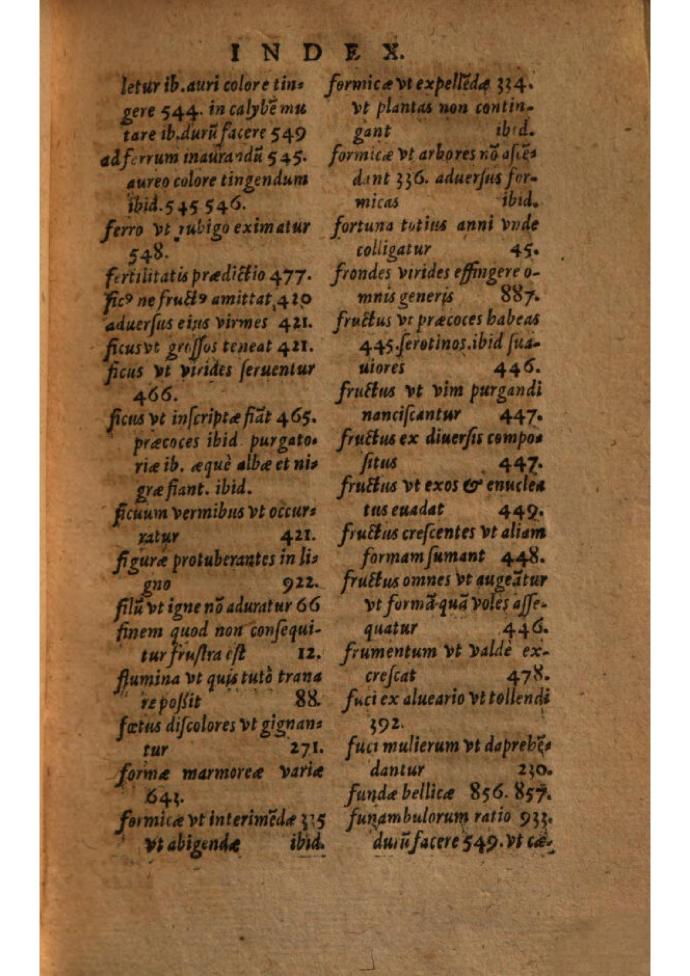 INDEX.
letur ib. auri colore tin-
gere 544. in calybẽ mu
tare ib. durũ facere 549
ad ferrum inaurandũ 545.
aureo colore tingendum
ibid. 545 546.
ferro vt rubigo eximatur
548.
fertilitatis prædictio 477.
ficꝰ ne fructꝰ amittat 420
aduersus eius virmes 421.
ficus vt grossos teneat 421.
ficus vt virides seruentur
466.
ficus vt inscriptæ fiãt 465.
præcoces ibid purgato-
riæ ib. æquè albæ et ni-
græ fiant. ibid.
ficuum vermibus vt occur-
ratur 421.
figuræ protuberantes in li-
gno 922.
filũ vt igne nõ aduratur 66
finem quod non consequi-
tur frustra est 12.
flumina vt quis tutò trana
re possit 88.
fœtus discolores vt gignan-
tur 271.
formæ marmoreæ variæ
643.
formicæ vt interimẽdæ 335
vt abigendæ ibid.
formicæ vt expellẽdæ 334.
vt plantas non contin-
gant ibid.
formicæ vt arbores nõ ascẽ-
dant 336. aduersus for-
micas ibid.
fortuna totius anni vnde
colligatur 45.
frondes virides effingere o-
mnis generis 887.
fructus vt præcoces habeas
445. serotinos. ibid sua-
uiores 446.
fructus vt vim purgandi
nanciscantur 447.
fructus ex diuersis compo-
situs 447.
fructus vt exos & enuclea
tus euadat 449.
fructus crescentes vt aliam
formam sumant 448.
fructus omnes vt augeãtur
vt formã quã voles asse-
quatur 446.
frumentum vt valdè ex-
crescat 478.
fuci ex alueario vt tollendi
392.
fuci mulierum vt daprehẽ-
dantur 230.
fundæ bellicæ 856. 857.
funambulorum ratio 933.
durũ facere 549. vt cæ-